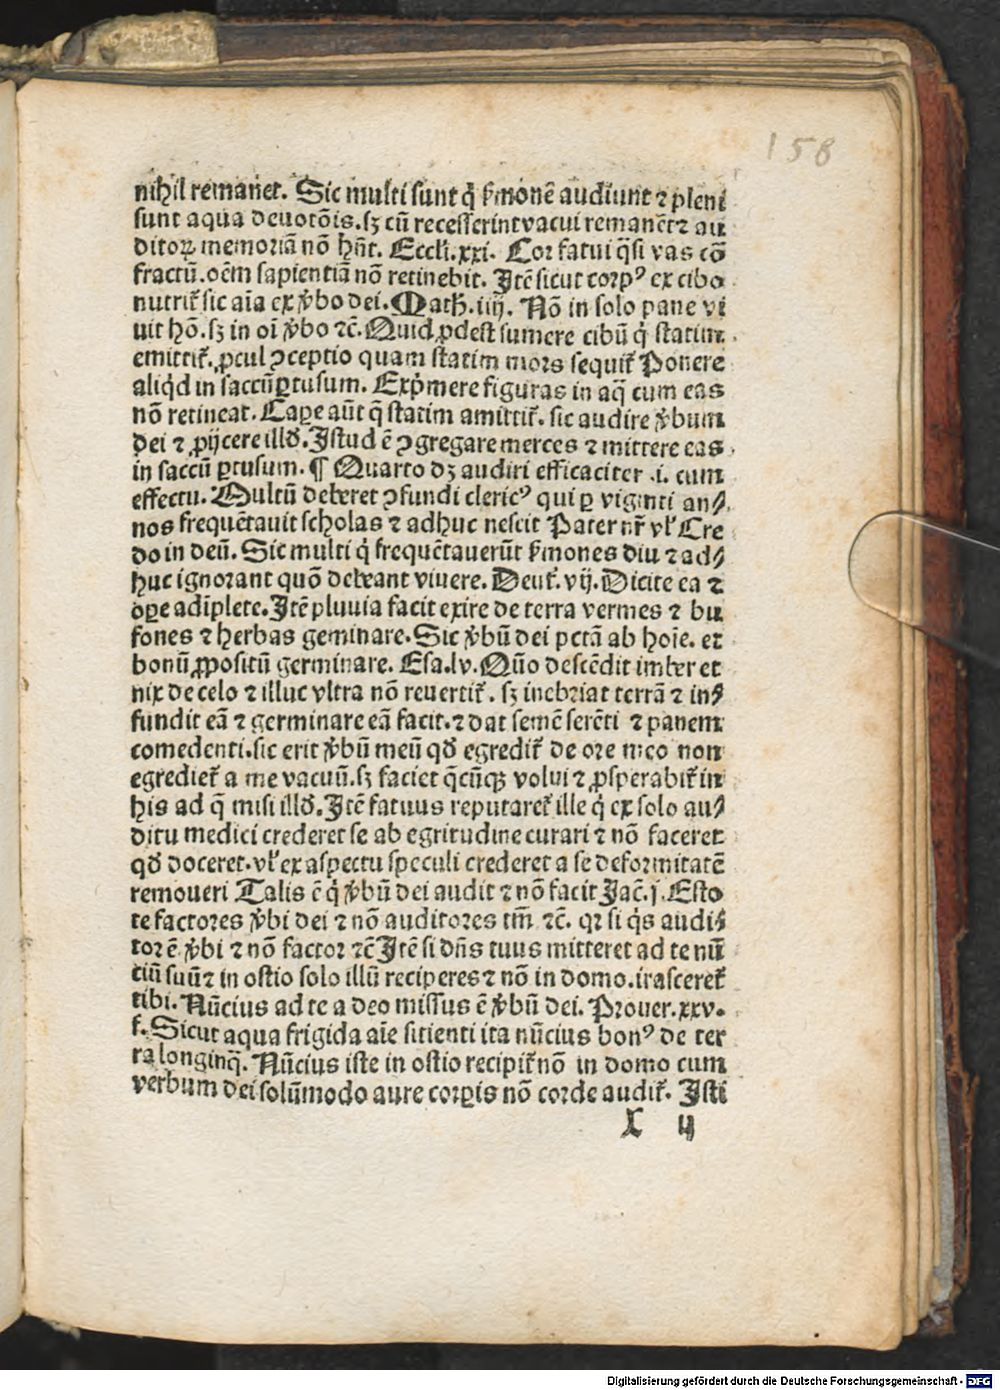 158
nihil remanet. Sic multi sunt q̇ ẜmonē audiunt ⁊ pleni
sunt aqua deuotōis. sꝫ cū recesserint vacui remanēt ⁊ au
ditoꝝ memoriā nō hn̄t. Eccli. xxi. Cor fatui q̄si vas cō
fractū. oēm sapientiā nō retinebit. Itē sicut corpꝰ ex cibo
nutrit᷑ sic aīa ex v̾bo dei. Math. iiij. Nō in solo pane vi
uit hō. sꝫ in oī v̾bo ⁊c̄. Quid ꝓdest sumere cibū q̇ statim
emittit᷑. ꝓcul ꝯceptio quam statim mors sequit᷑ Ponere
aliq̇d in saccū ꝑtusum. Exṗmere figuras in aq̄ cum eas
nō retineat. Caꝑe aūt q̄ statim amittit᷑. sic audire v̾bum
dei ⁊ ꝓijcere illd̾. Istud ē ꝯgregare merces ⁊ mittere eas
in saccū ꝑtusum. ¶ Quarto dꝫ audiri efficaciter .i. cum
effectu. Multū deberet ꝯfundi clericꝰ qui ꝑ viginti an⸗
nos frequētauit scholas ⁊ adhuc nescit Pater nr̄ vl̾ Cre
do in deū. Sic multi q̇ frequētauerūt ẜmones diu ⁊ ad⸗
huc ignorant quō debeant viuere. Deut᷑. vij. Dicite ea ⁊
oꝑe adiplete. Itē pluuia facit exire de terra vermes ⁊ bu
fones ⁊ herbas geminare. Sic v̾bū dei pctā ab hoīe. et
bonū ꝓpositū germinare. Esa. lv. Quō descēdit imber et
nix de celo ⁊ illuc vltra nō reuertit᷑. sꝫ inebriat terrā ⁊ in⸗
fundit eā ⁊ germinare eā facit. ⁊ dat semē serēti ⁊ panem
comedenti. sic erit v̾bū meū qd̾ egredit᷑ de ore meo non
egrediet᷑ a me vacuū. sꝫ faciet q̄cūqꝫ volui ⁊ ꝓsperabit᷑ in
his ad q̄ misi illd̾. Itē fatuus reputaret᷑ ille q̇ ex solo au⸗
ditu medici crederet se ab egritudine curari ⁊ nō faceret
qd̾ doceret. vl̾ ex aspectu speculi crederet a se deformitatē
remoueri Talis ē q̇ v̾bū dei audit ⁊ nō facit Jac̄. j. Esto
te factores v̾bi dei ⁊ nō auditores tm̄ ⁊c̄. qr si q̇s audi⸗
tor ē v̾bi ⁊ nō factor ⁊c̄ Itē si dn̄s tuus mitteret ad te nū
ciū suū ⁊ in ostio solo illū reciperes ⁊ nō in domo. irasceret᷑
tibi. Nūcius ad te a deo missus ē v̾bū dei. Prouer. xxv.
f. Sicut aqua frigida aīe sitienti ita nūcius bonꝰ de ter
ra longinq̄. Nūcius iste in ostio recipit᷑ nō in domo cum
verbum dei solūmodo aure corꝑis nō corde audit᷑. Isti
X ij
Digitalisierung gefördert durch die Deutsche Forschungsgemeinschaft - DFG